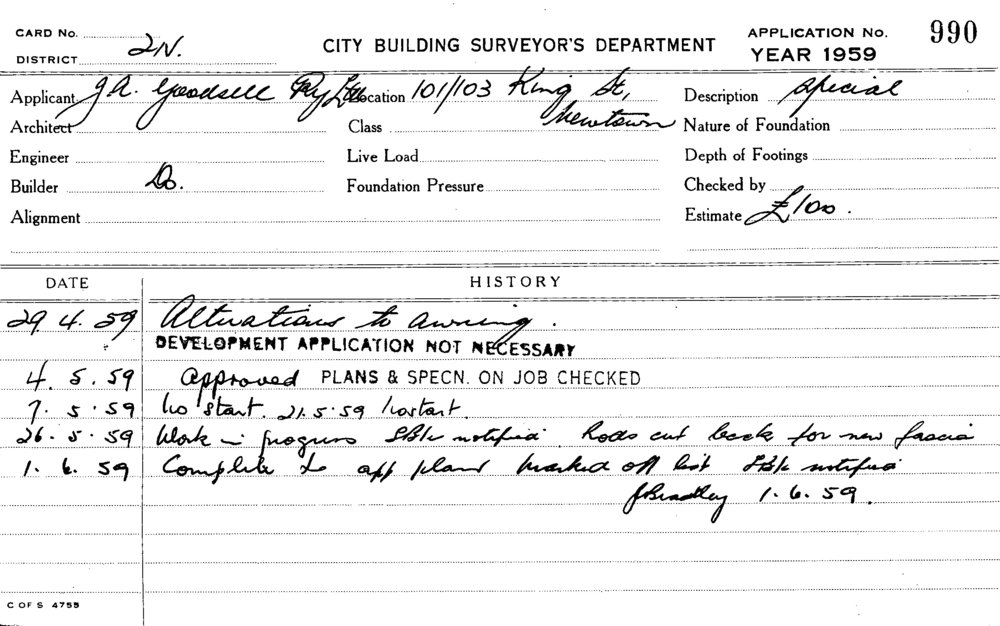 CARD No.
DISTRICT 2N.
CITY BUILDING SURVEYOR'S DEPARTMENT
APPLICATION No. 990
YEAR 1959
Applicant J A. Goodsell Pty Ltd Location 101/103 King St, Newtown Description Special
Architect Class Nature of Foundation
Engineer Live Load Depth of Footings
Builder Do. Foundation Pressure Checked by
Alignment Estimate £100.
DATE HISTORY
29. 4. 59 Alterations to awning.
DEVELOPMENT APPLICATION NOT NECESSARY
4. 5. 59 Approved PLANS & SPECN. ON JOB CHECKED
7. 5. 59 No start. 21.5.59 No start.
26. 5. 59 Work in progress notified. Rods cut back for new fascia
1. 6. 59 Complete to app plans marked off list notified
JBradley 1. 6. 59.
C OF S 4755